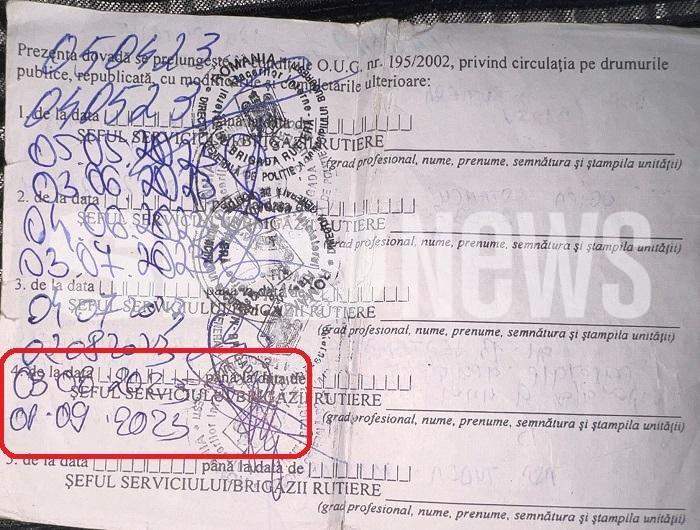 05.04.23
Prezenta dovadă se prelungește în condițiile O.U.G. nr. 195/2002, privind circulația pe drumurile
publice, republicată, cu modificările și completările ulterioare:
04.05.23
1. de la data până la data de
ȘEFUL SERVICIULUI/BRIGAZII RUTIERE
05.05.2023
(grad profesional, nume, prenume, semnătura și ștampila unității)
03.06.2023
2. de la data până la data de
04.06.2023
ȘEFUL SERVICIULUI/BRIGAZII RUTIERE
(grad profesional, nume, prenume, semnătura și ștampila unității)
03.07.2023
3. de la data până la data de
04.07.2023
ȘEFUL SERVICIULUI/BRIGAZII RUTIERE
(grad profesional, nume, prenume, semnătura și ștampila unității)
02.08.2023
4. de la data până la data de
03.08.2023
ȘEFUL SERVICIULUI/BRIGAZII RUTIERE
01.09.2023
(grad profesional, nume, prenume, semnătura și ștampila unității)
5. de la data până la data de
ȘEFUL SERVICIULUI/BRIGAZII RUTIERE
(grad profesional, nume, prenume, semnătura și ștampila unității)
ROMANIA
BRIGADA RUTIERĂ
news